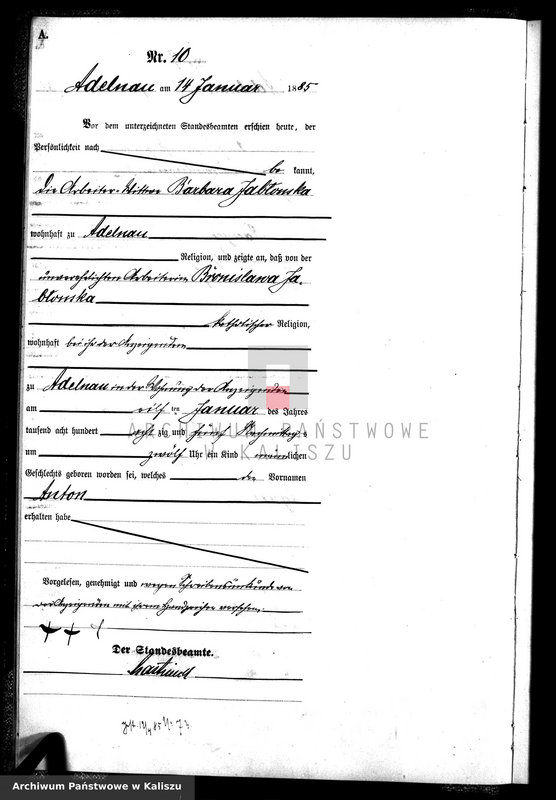 A.
Nr. 10
Adelnau am 14 Januar 1885
Vor dem unterzeichneten Standesbeamten erschien heute, der
Persönlichkeit nach
be kannt,
die Arbeiter-Wittwe Barbara Jabłonska
wohnhaft zu Adelnau
Religion, und zeigte an, daß von der
unverehelichten Arbeiterin Bronislawa Ja-
błonska
katholischer Religion,
wohnhaft bei ihr der Anzeigenden
zu Adelnau in der Wohnung der Anzeigenden
am eilf ten Januar des Jahres
tausend acht hundert acht zig und fünf Nachmittags
um zwölf Uhr ein Kind männlichen
Geschlechts geboren worden sei, welches den Vornamen
Anton
erhalten habe
ARCHIWUM PAŃSTWOWE
W KALISZU
Vorgelesen, genehmigt und wegen Schreibensunkunde von
der Anzeigenden mit ihrem Handzeichen versehen.
+++
Der Standesbeamte.
73
Archiwum Państwowe w Kaliszu